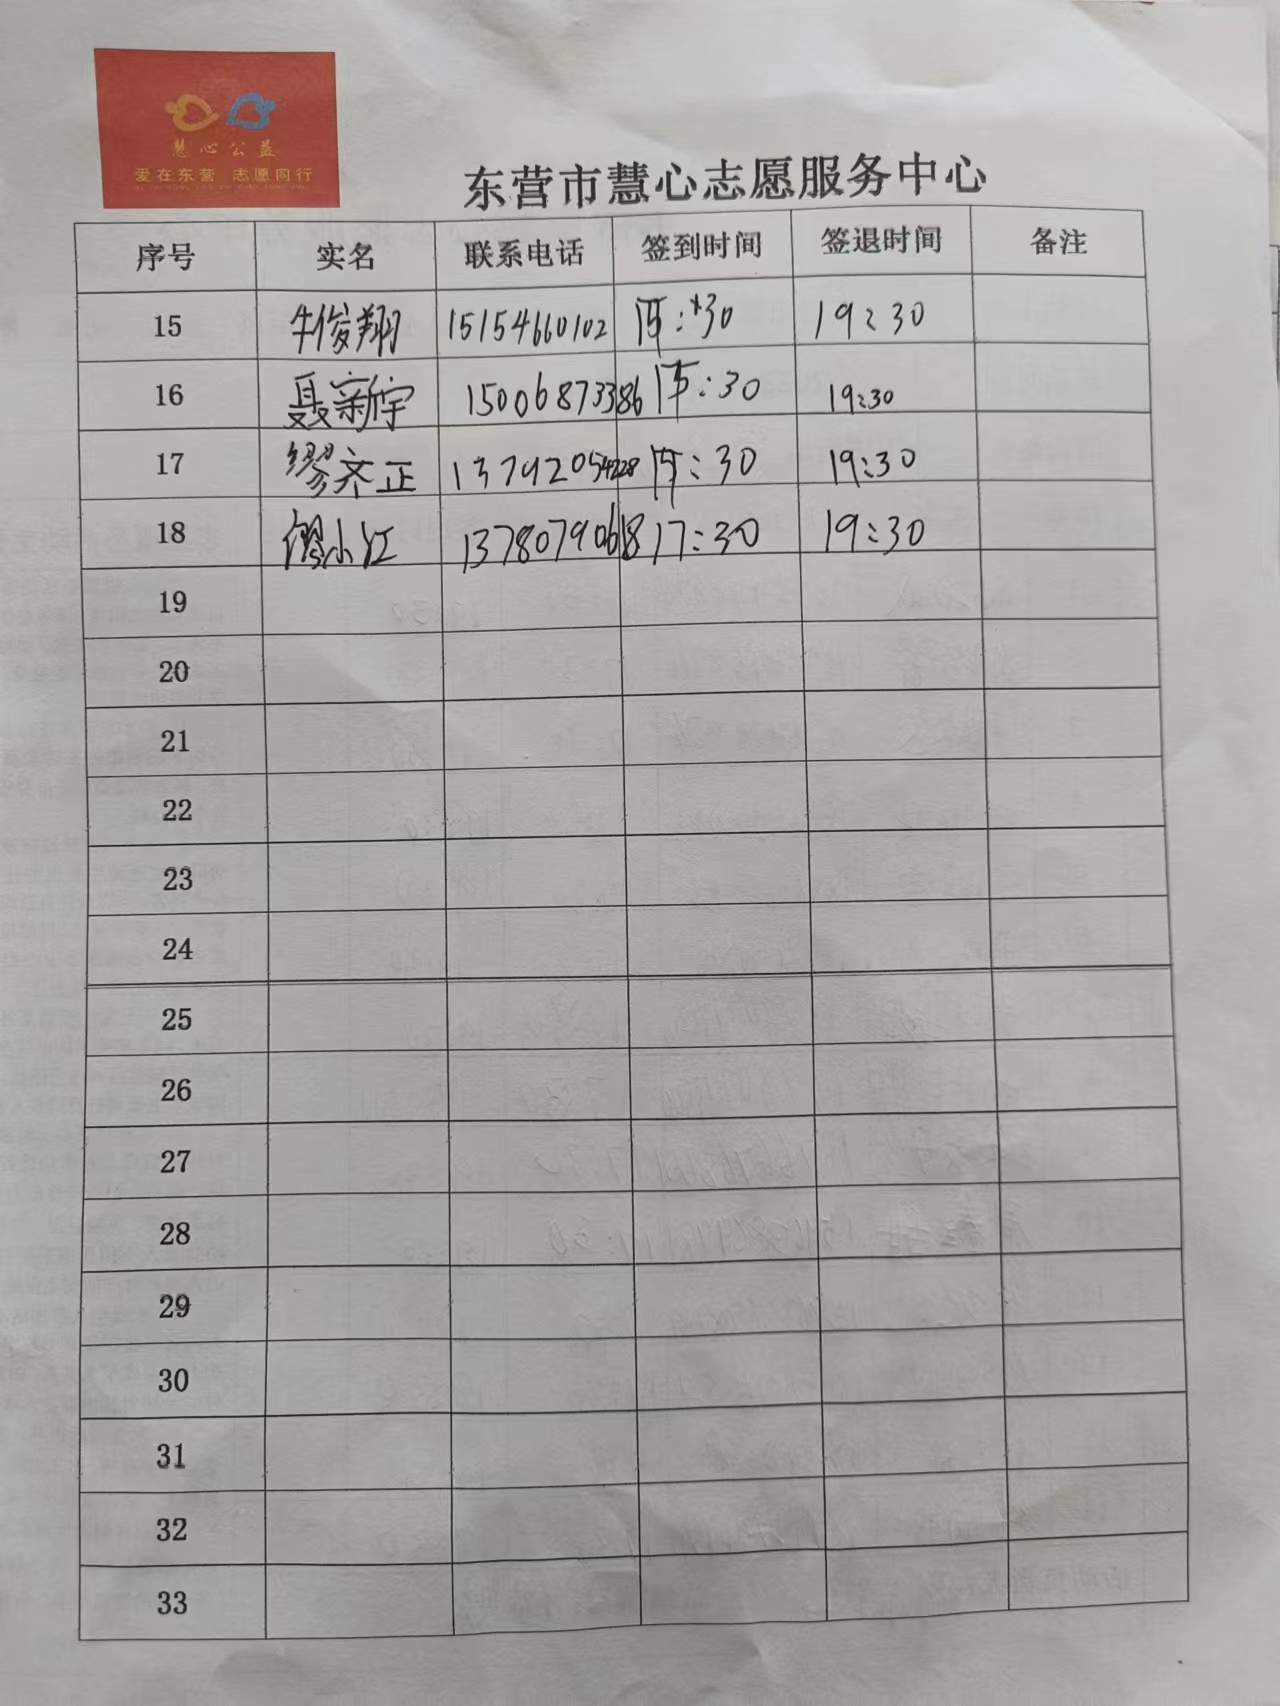 慧心公益
爱在东营 志愿同行
东营市慧心志愿服务中心
序号 实名 联系电话 签到时间 签退时间 备注
15 牛俊翔 15154660102 :30 19:30
16 聂宗宇 15006873386 :30 19:30
17 缪齐正 13792054228 :30 19:30
18 缪小江 13780790618 17:30 19:30
19
20
21
22
23
24
25
26
27
28
29
30
31
32
33